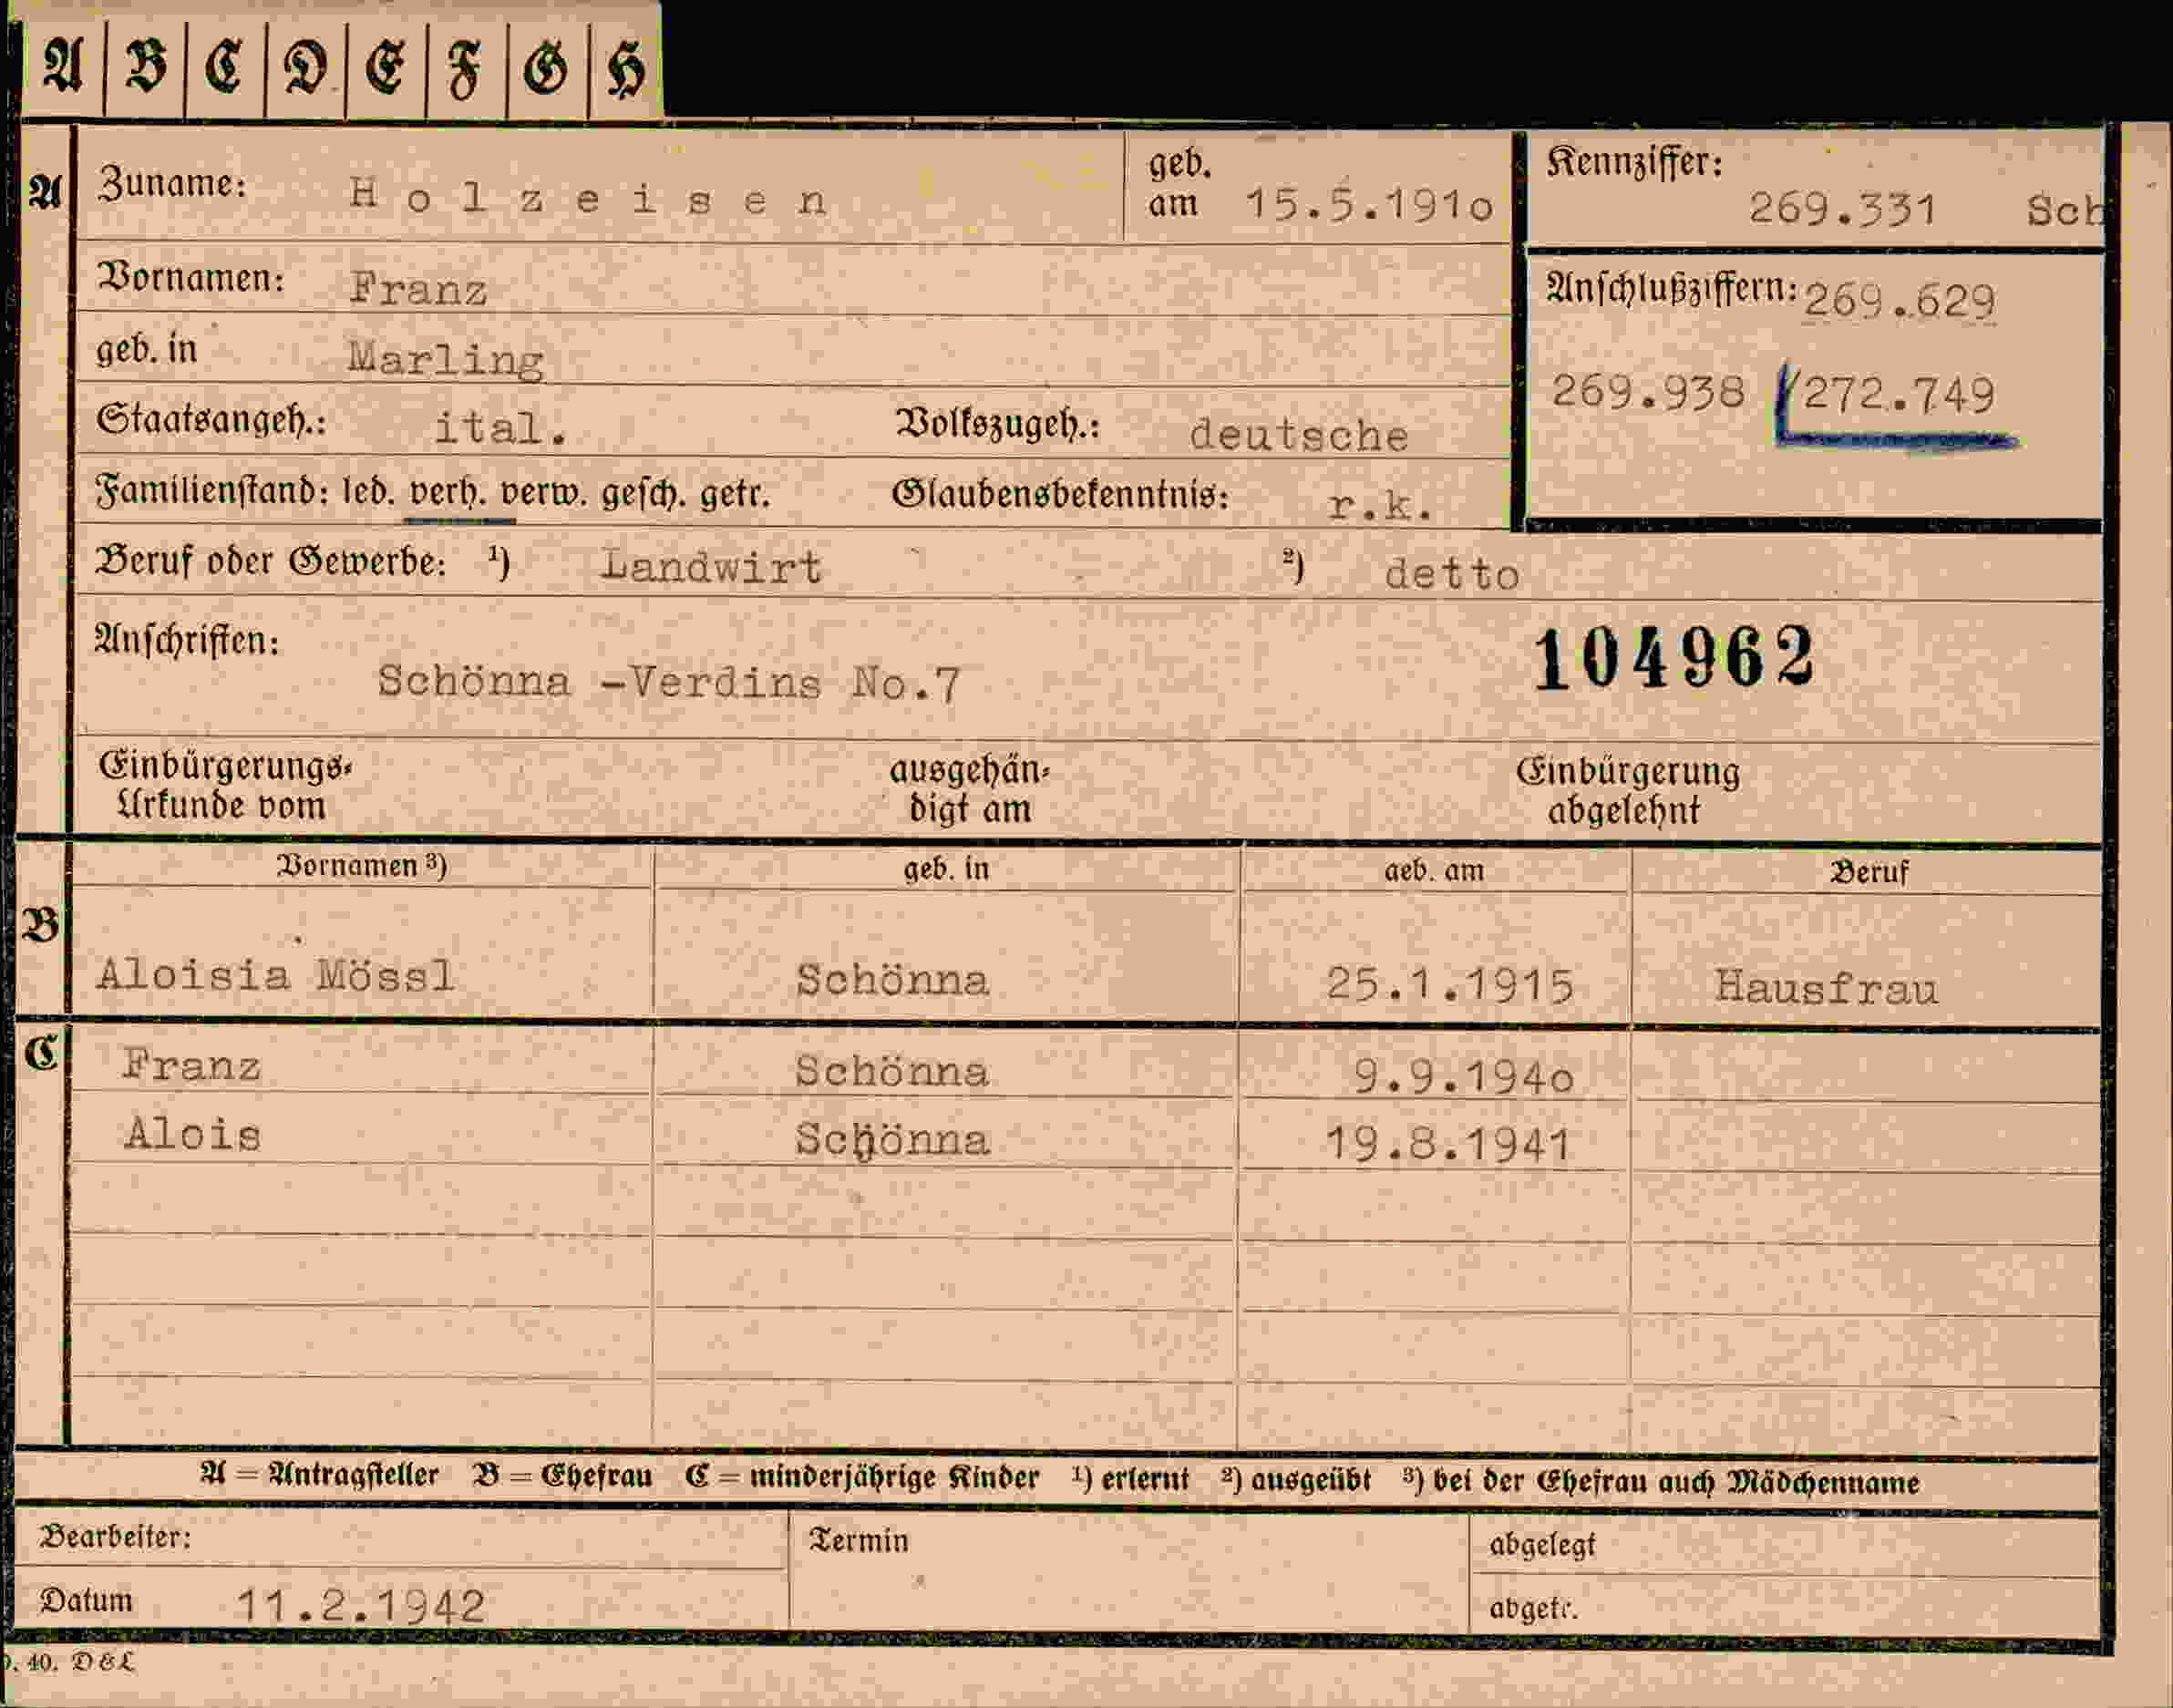 A B C D E F G H
A Zuname: Holzeisen geb. am 15.5.191o Kennziffer: 269.331 Sch
Vornamen: Franz Anschlußziffern: 269.629
geb. in Marling 269.938 /272.749
Staatsangeh.: ital. Volkszugeh.: deutsche
Familienstand: led. verh. verw. gesch. getr. Glaubensbekenntnis: r.k.
Beruf oder Gewerbe: ¹) Landwirt ²) detto
Anschriften: 104962
Schönna -Verdins No.7
Einbürgerungs- ausgehän- Einbürgerung
Urkunde vom digt am abgelehnt
Vornamen ³) geb. in geb. am Beruf
B
Aloisia Mössl Schönna 25.1.1915 Hausfrau
C Franz Schönna 9.9.194o
Alois Schönna 19.8.1941
A = Antragsteller B = Ehefrau C = minderjährige Kinder ¹) erlernt ²) ausgeübt ³) bei der Ehefrau auch Mädchenname
Bearbeiter: Termin abgelegt
Datum 11.2.1942 abgetr.
. 40. D & L